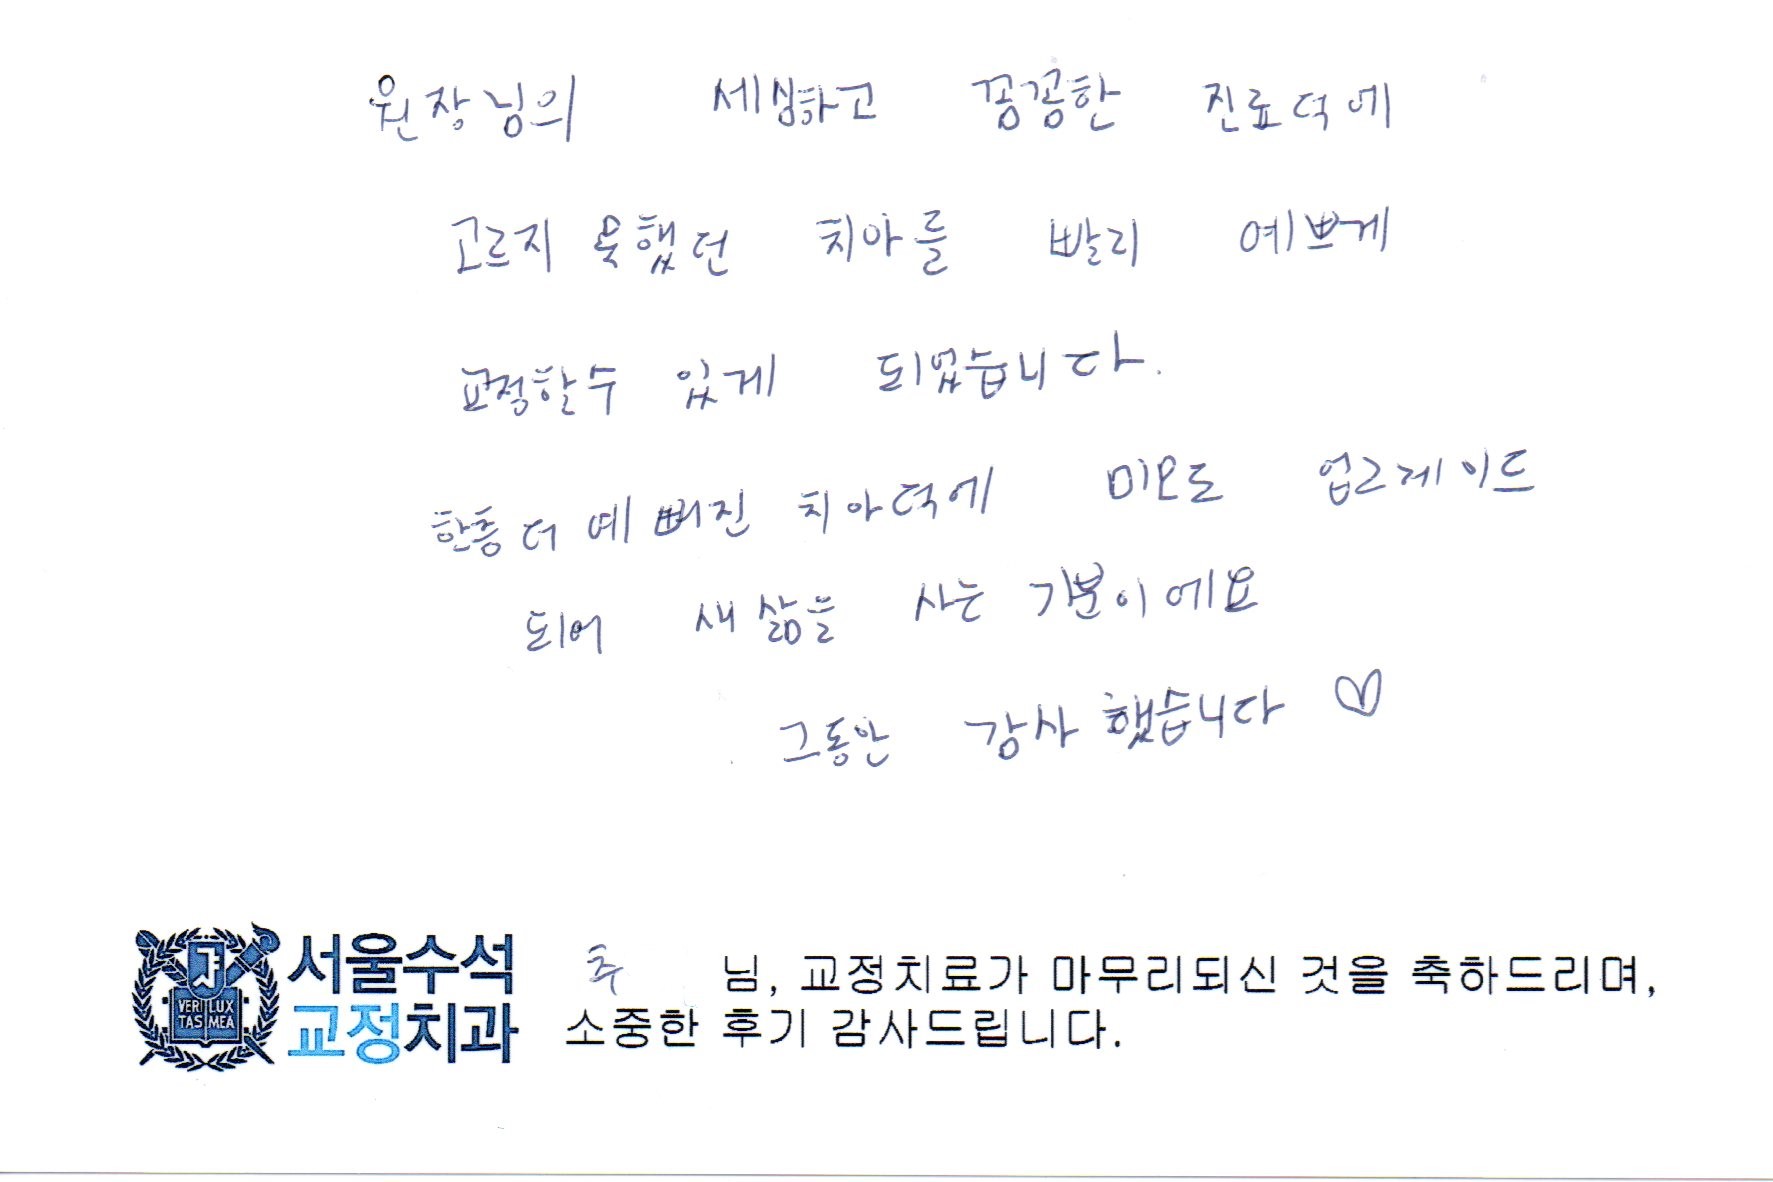 원장님의 세심하고 꼼꼼한 진료덕에
고르지 못했던 치아를 빨리 예쁘게
교정할수 있게 되었습니다.
한층 더 예뻐진 치아덕에 미모도 업그레이드
되어 새 삶을 사는 기분이에요
그동안 감사했습니다 ♡
서울수석
교정치과
VERI LUX
TAS MEA
주 님, 교정치료가 마무리되신 것을 축하드리며,
소중한 후기 감사드립니다.